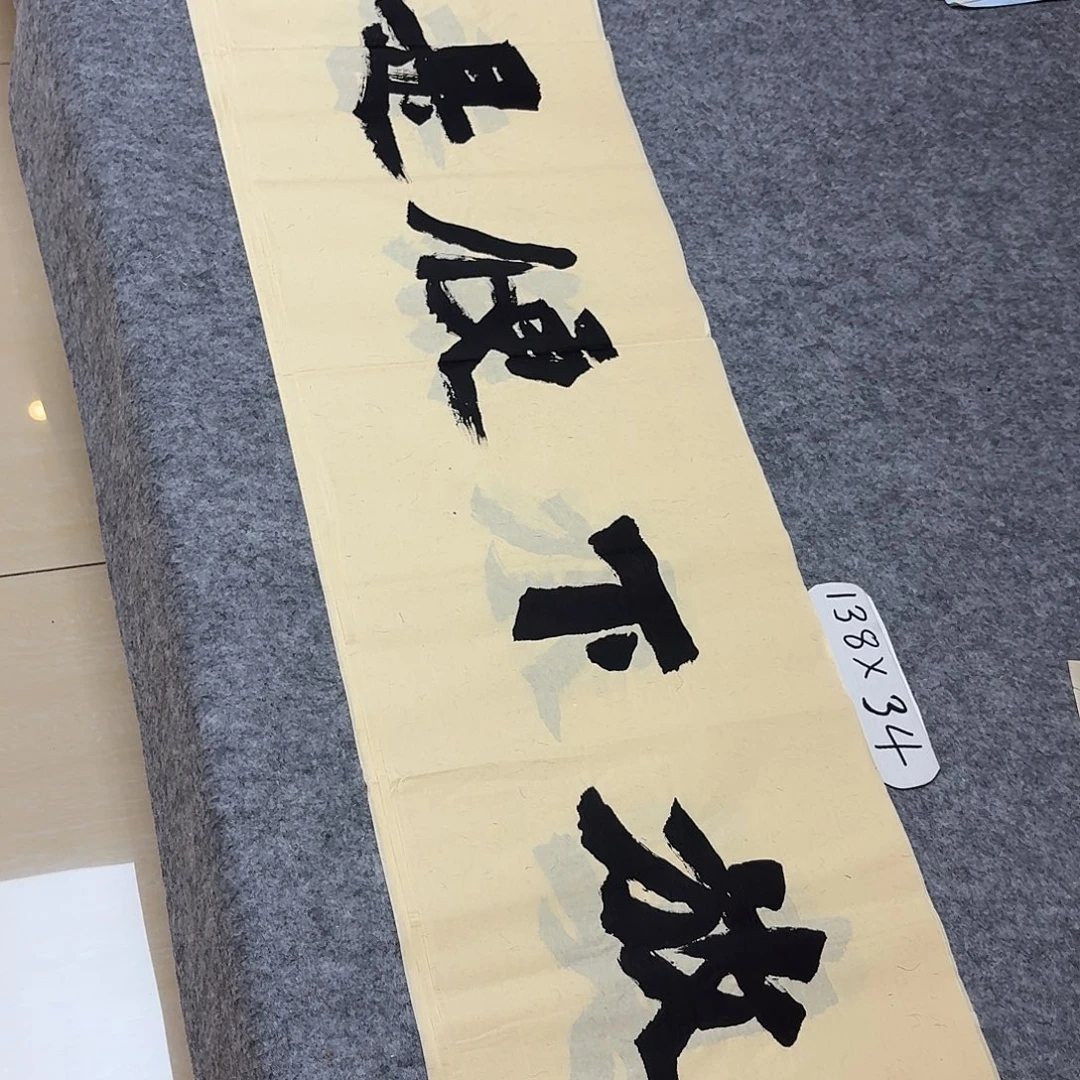 放下便是
138X34